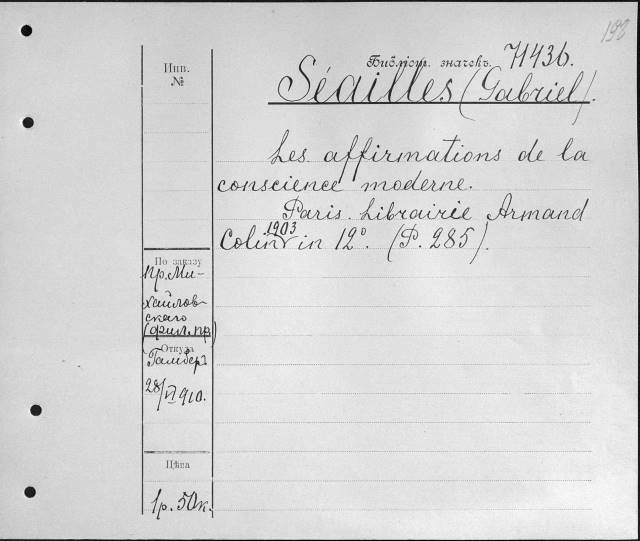 198
Инв.
№
Библіот. значекъ. 71436.
Séailles (Gabriel).
Les affirmations de la
conscience moderne.
Paris. Librairie Armand
1903
Colin in 12°. (P. 285).
По заказу
пр. Ми-
хайлов-
скаго
(фил. пр)
Откуда
Гамбер
28/VI 910.
Цѣна
1р. 50к.